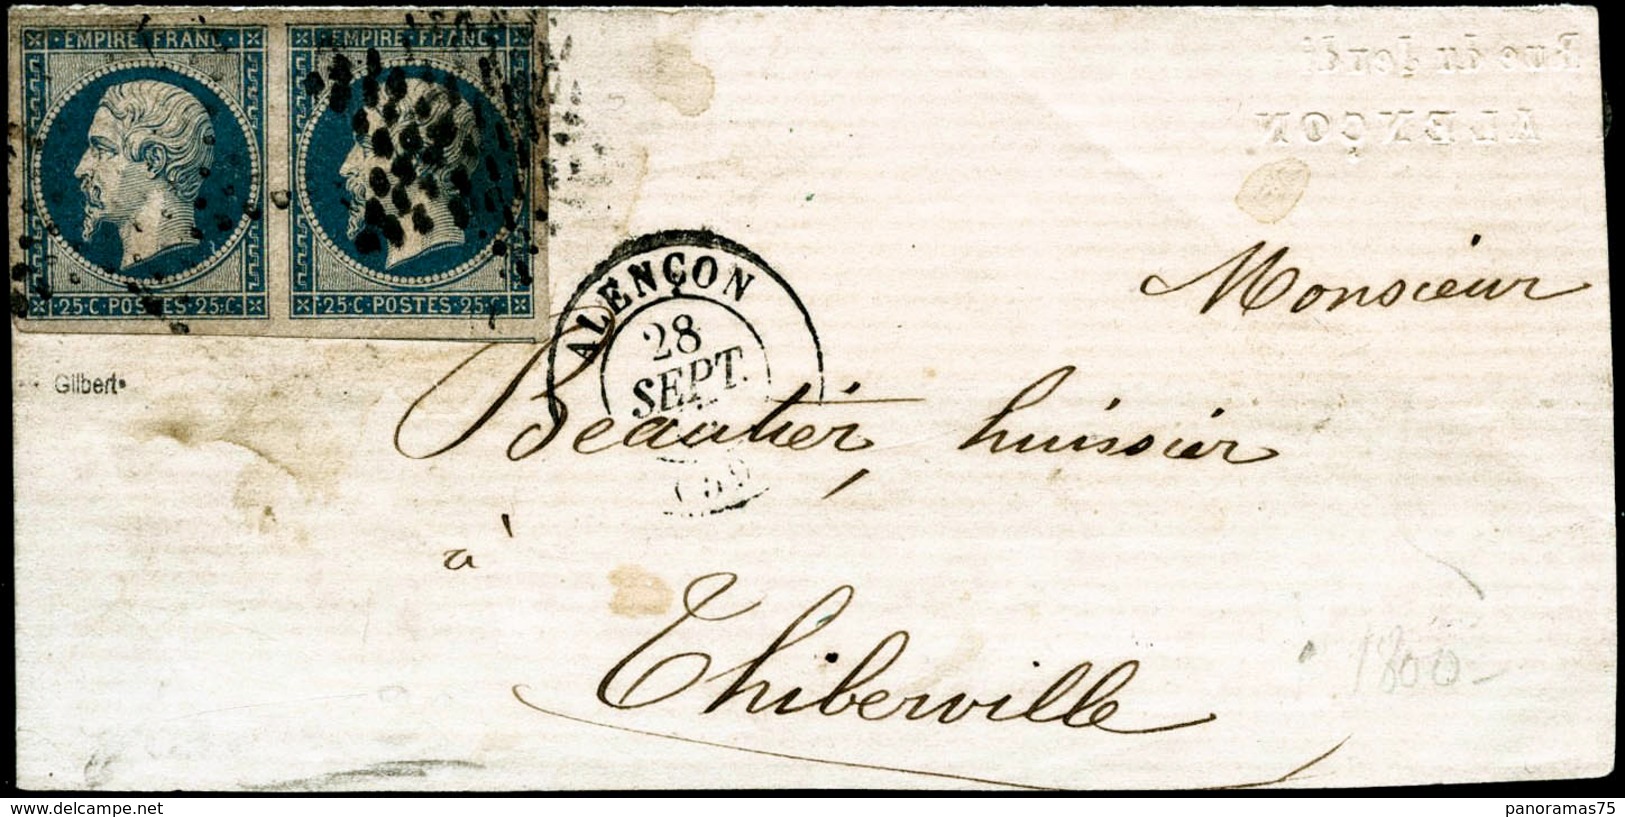 EMPIRE FRANC
EMPIRE FRANC
25·C·POSTES·25·C
25·C·POSTES·25·C
Rue du Jeudi
ALENÇON
ALENÇON
28
SEPT.
Gilbert
Monsieur
Beautier, huissier
à
Thiberville
1800-
www.delcampe.net
panoramas75